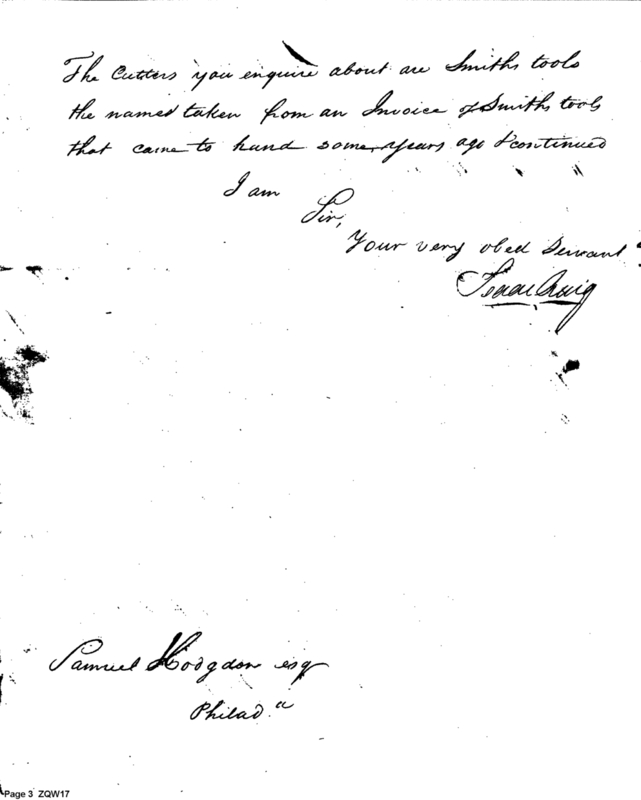 The Cutters you enquire about are Smiths tools
the named taken from an Invoice of Smiths tools
that came to hand some years ago & continued
I am
Sir,
Your very obed Servant
Isaac Craig
Samuel Hodgdon esq
Philad.a
Page 3 ZQW17